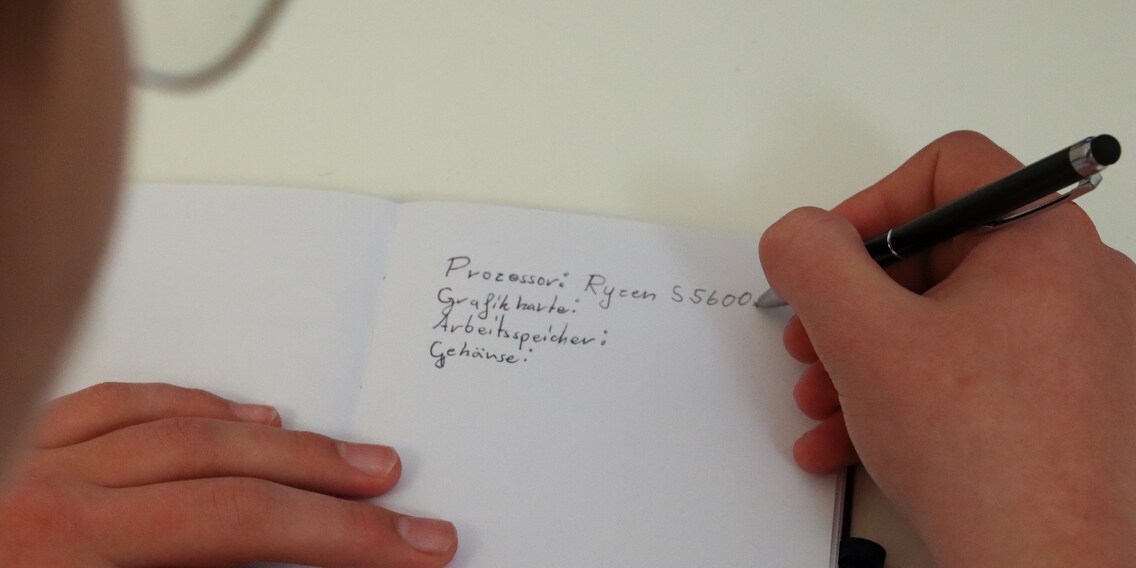 Prozessor: Ryzen 5 5600
Grafikkarte:
Arbeitsspeicher:
Gehäuse: